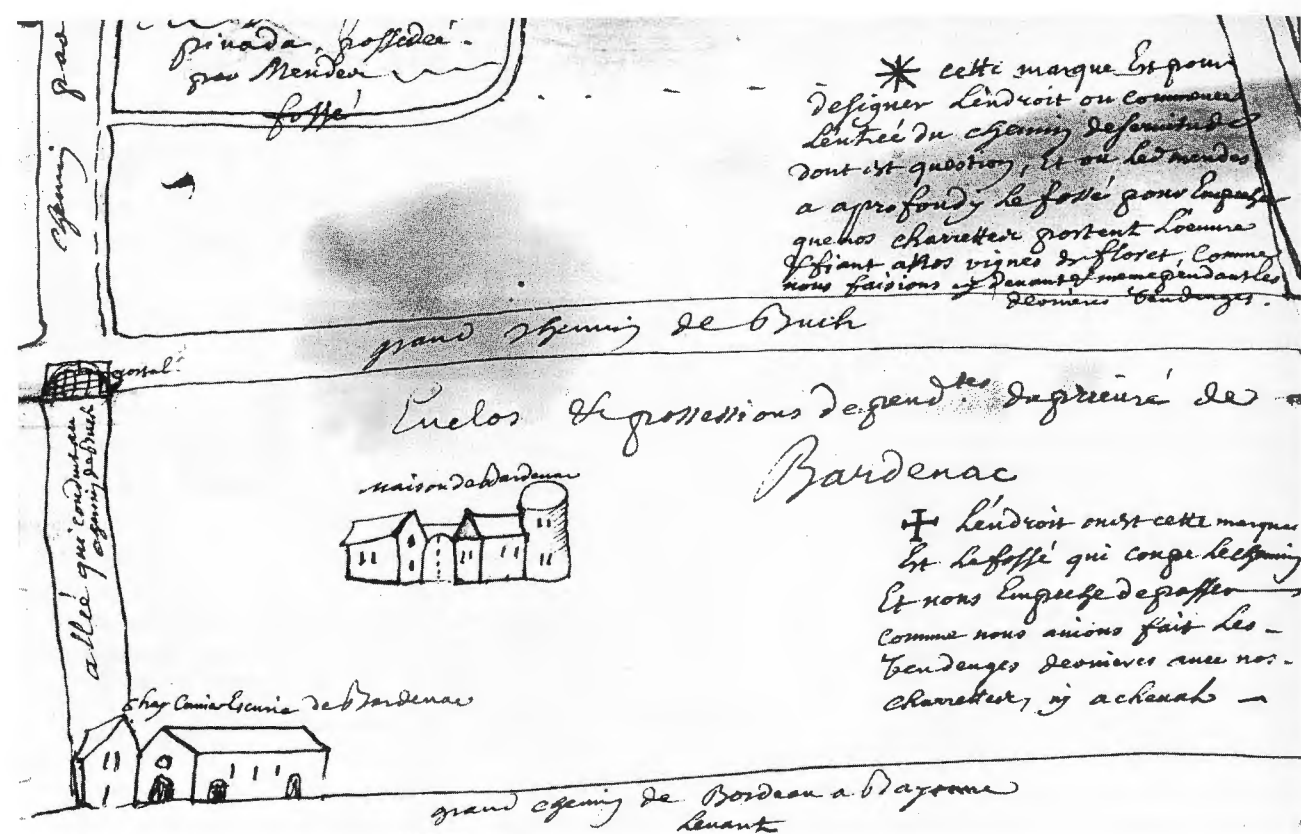 pinada, possedeé
par Mendes
fossé
chemin
cette marque Est pour
designer L'endroit ou commence
L'entreé du chemin deservitude
dont ist question, Et ou Led mendes
a aprofondy le fossé pour Empecher
que nos charrettes portent L'oeuvre
a nos vignes de floret, Comme
nous faisions cy devant & meme pendant les
dernieres vendenges.
grand chemin de Buch
portal
Enclos & possessions depend.tes du prieuré de
Bardenac
allée qui conduit au
chemin de Buch
Maison de Bardenac
L'endroit ou est cette marque
Est le fossé qui coupe le chemin
Et nous Empeche de passer
comme nous avions fait Les
vendenges dernieres avec nos
charrettes, ny a cheval
Chay Cuvier Escurie de Bardenac
grand chemin de Bordeau a Bayonne
Levant